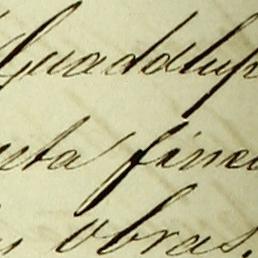 Guadalup
eta finca
obras.